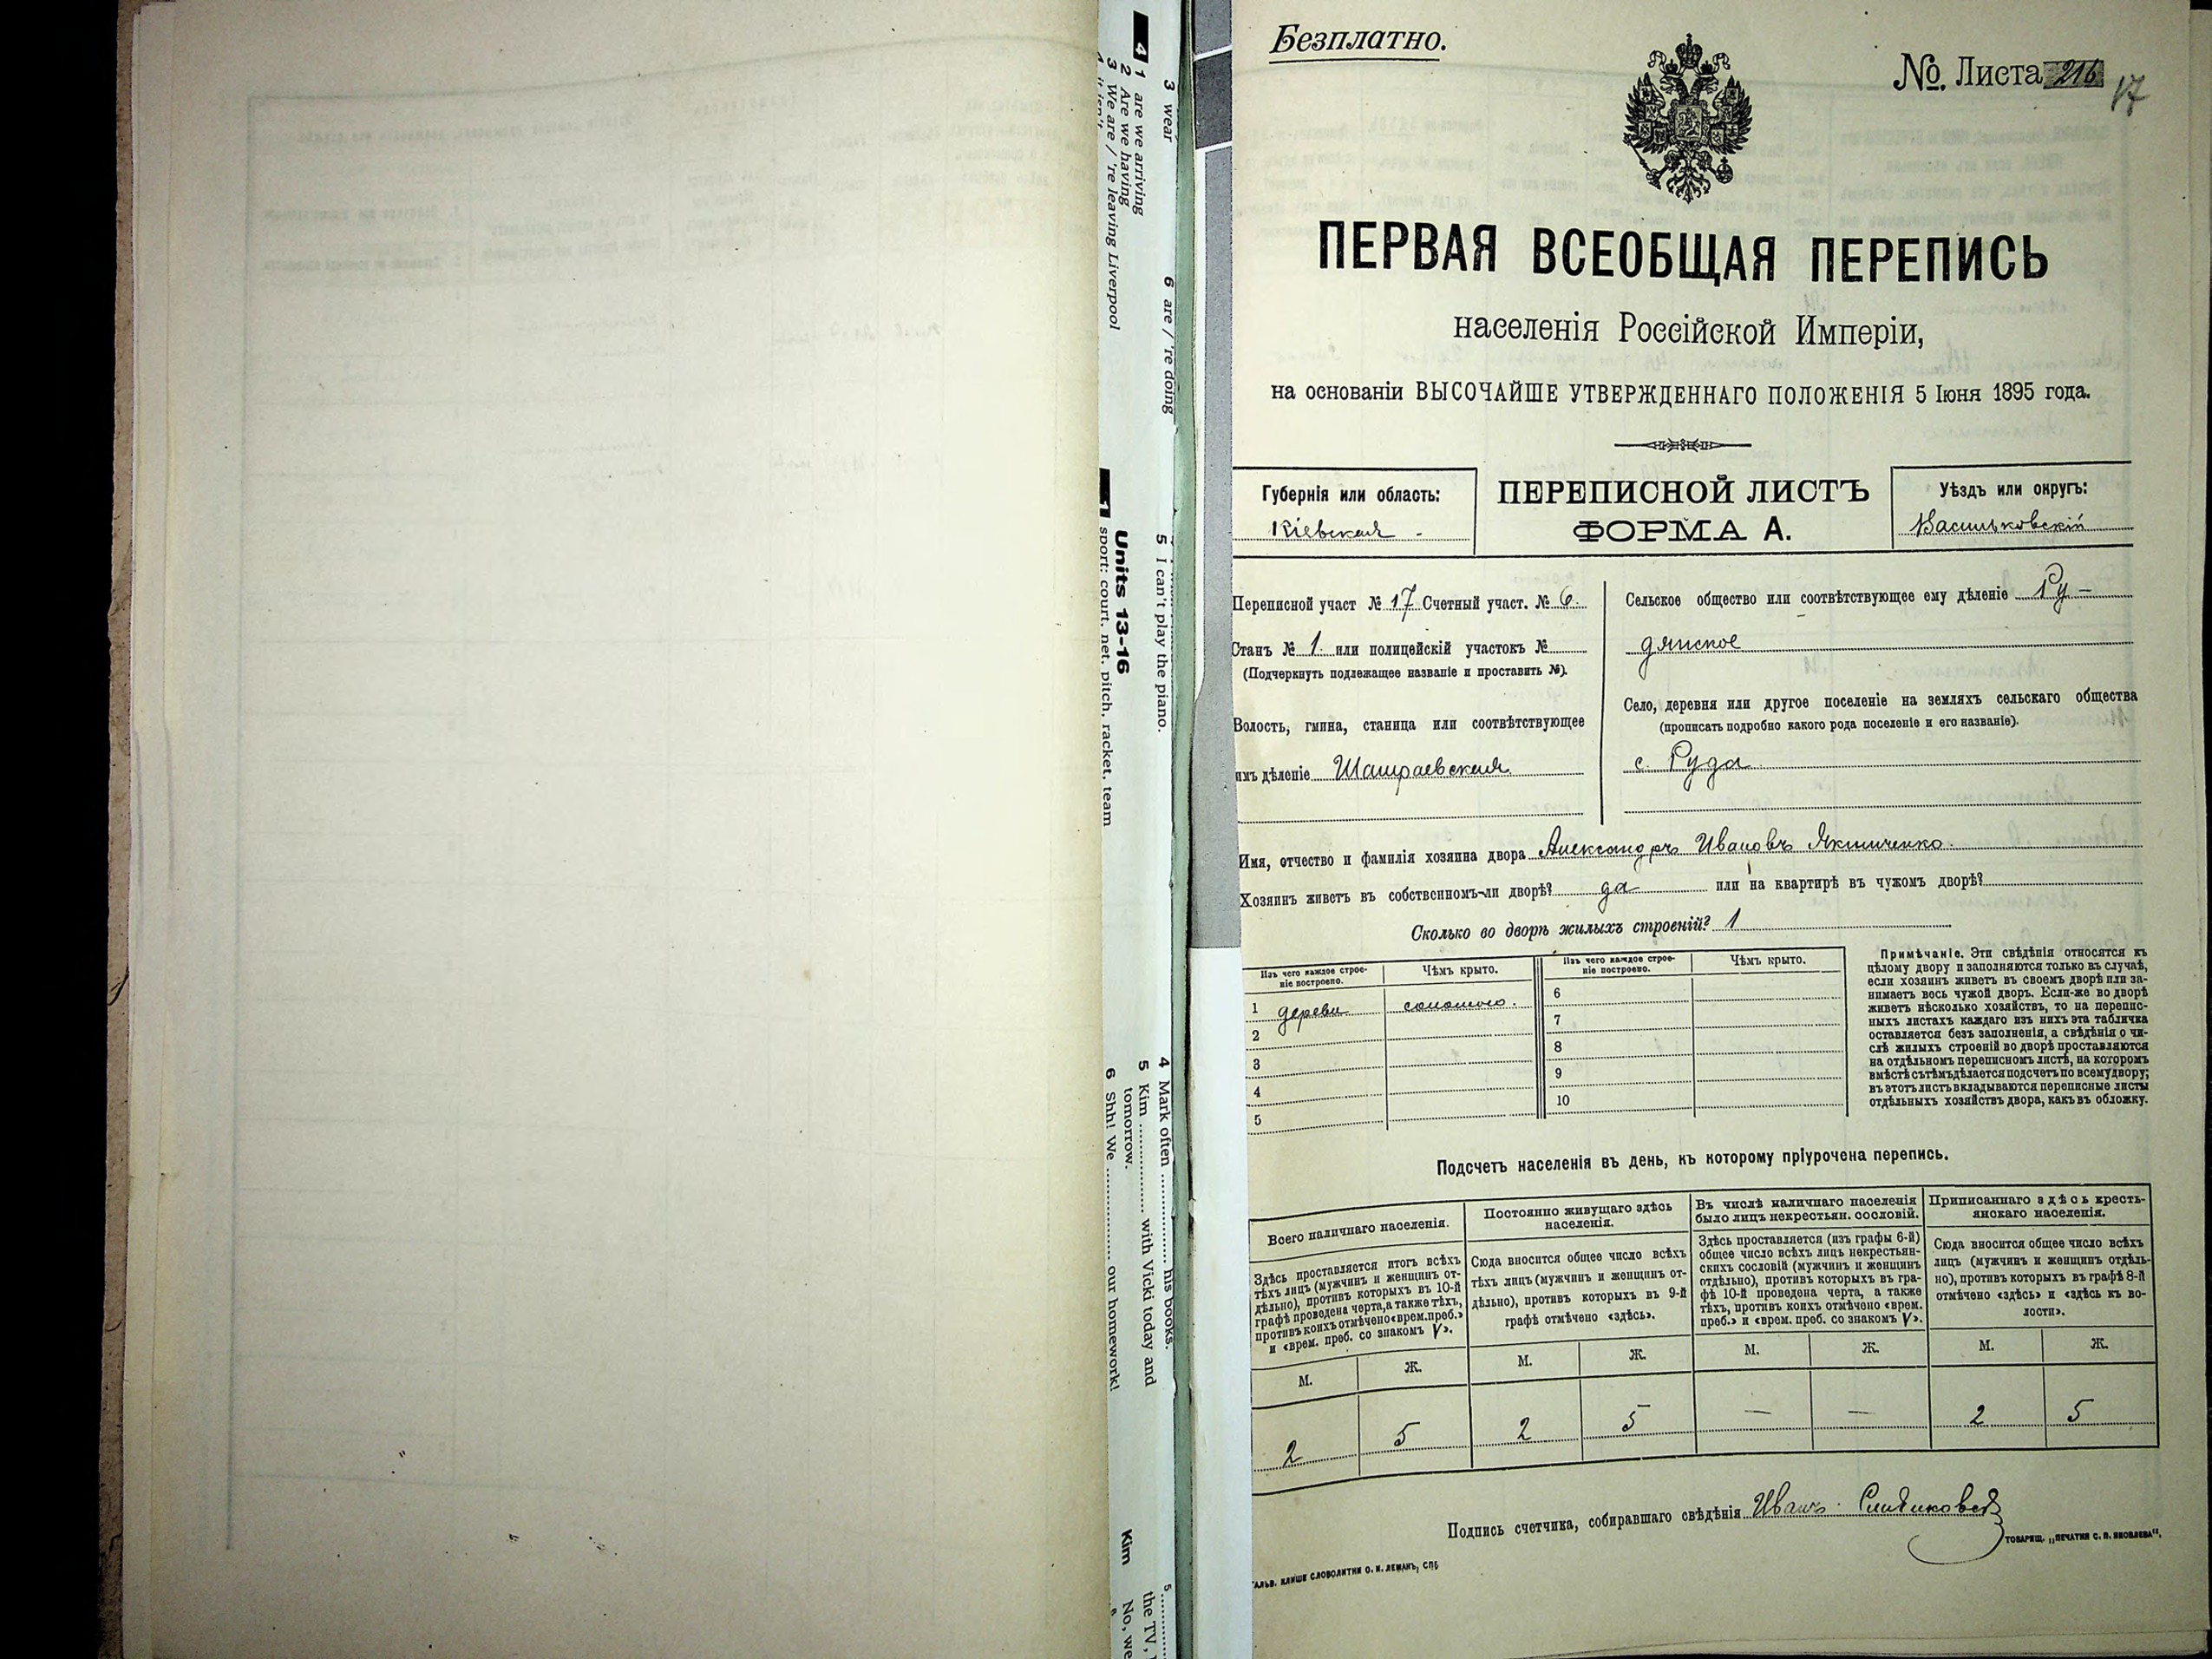 Безплатно.
№ Листа 216
17
ПЕРВАЯ ВСЕОБЩАЯ ПЕРЕПИСЬ
населенія Россійской Имперіи,
на основаніи ВЫСОЧАЙШЕ УТВЕРЖДЕННАГО ПОЛОЖЕНІЯ 5 Іюня 1895 года.
Губернія или область:
Кіевская
ПЕРЕПИСНОЙ ЛИСТЪ
ФОРМА А.
Уѣздъ или округъ:
Васильковскій
Переписной участ № 17 Счетный участ. № 6.
Станъ № 1. или полицейскій участокъ №
(Подчеркнуть подлежащее названіе и проставить №).
Волость, гмина, станица или соотвѣтствующее
имъ дѣленіе Шамраевская
Сельское общество или соотвѣтствующее ему дѣленіе Ру-
дянское
Село, деревня или другое поселеніе на земляхъ сельскаго общества
(прописать подробно какого рода поселеніе и его названіе).
с. Руда
Имя, отчество и фамилія хозяина двора Александръ Ивановъ
Хозяинъ живетъ въ собственномъ-ли дворѣ? да или на квартирѣ въ чужомъ дворѣ?
Сколько во дворѣ жилыхъ строеній? 1
Изъ чего каждое строе-
ніе построено.
Чѣмъ крыто.
1 дерева соломою.
2
3
4
5
Изъ чего каждое строе-
ніе построено.
Чѣмъ крыто.
6
7
8
9
10
Примѣчаніе. Эти свѣдѣнія относятся къ
цѣлому двору и заполняются только въ случаѣ,
если хозяинъ живетъ въ своемъ дворѣ или за-
нимаетъ весь чужой дворъ. Если-же во дворѣ
живетъ нѣсколько хозяйствъ, то на перепис-
ныхъ листахъ каждаго изъ нихъ эта табличка
оставляется безъ заполненія, а свѣдѣнія о чи-
слѣ жилыхъ строеній во дворѣ проставляются
на отдѣльномъ переписномъ листѣ, на которомъ
вмѣстѣ съ тѣмъ дѣлается подсчетъ по всему двору;
въ этотъ листъ вкладываются переписные листы
отдѣльныхъ хозяйствъ двора, какъ въ обложку.
Подсчетъ населенія въ день, къ которому пріурочена перепись.
Всего наличнаго населенія.
Здѣсь проставляется итогъ всѣхъ
тѣхъ лицъ (мужчинъ и женщинъ от-
дѣльно), противъ которыхъ въ 10-й
графѣ проведена черта, а также тѣхъ,
противъ коихъ отмѣчено «врем. преб.»
и «врем. преб. со знакомъ V».
М. Ж.
2 5
Постоянно живущаго здѣсь
населенія.
Сюда вносится общее число всѣхъ
тѣхъ лицъ (мужчинъ и женщинъ от-
дѣльно), противъ которыхъ въ 9-й
графѣ отмѣчено «здѣсь».
М. Ж.
2 5
Въ числѣ наличнаго населенія
было лицъ некрестьян. сословій.
Здѣсь проставляется (изъ графы 6-й)
общее число всѣхъ лицъ некрестьян-
скихъ сословій (мужчинъ и женщинъ
отдѣльно), противъ которыхъ въ гра-
фѣ 10-й проведена черта, а также
тѣхъ, противъ коихъ отмѣчено «врем.
преб.» и «врем. преб. со знакомъ V».
М. Ж.
— —
Приписаннаго здѣсь кресть-
янскаго населенія.
Сюда вносится общее число всѣхъ
лицъ (мужчинъ и женщинъ отдѣль-
но), противъ которыхъ въ графѣ 8-й
отмѣчено «здѣсь» и «здѣсь къ во-
лости».
М. Ж.
2 5
Подпись счетчика, собиравшаго свѣдѣнія Иванъ
ГАЛЬВ. КЛИШЕ СЛОВОЛИТНИ О. И. ЛЕМАНЪ, СПБ
ТОВАРИЩ. „ПЕЧАТНЯ С. П. ЯКОВЛЕВА".
3 wear
6 are / 're doing
5 I can't play the piano.
4 Mark often his books.
5 Kim with Vicki today and
tomorrow.
6 Shh! We our homework!
4
1 are we arriving
2 Are we having
3 We are / 're leaving Liverpool
Units 13-16
1 sport: court, net, pitch, racket, team
Kim No, we
the TV,